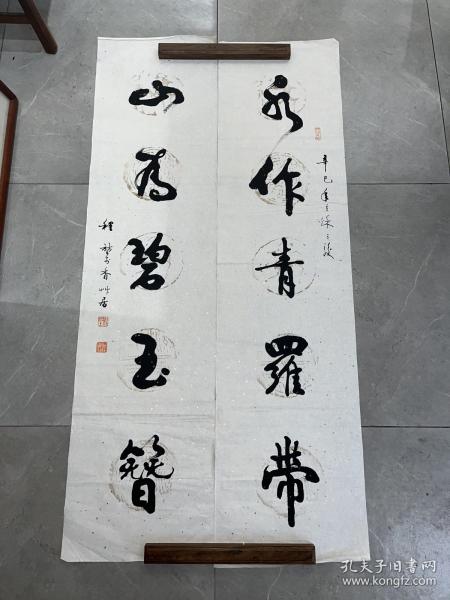 水作青羅帶
辛巳
山為碧玉簪
程
香艸居
孔夫子旧书网
www.kongfz.com